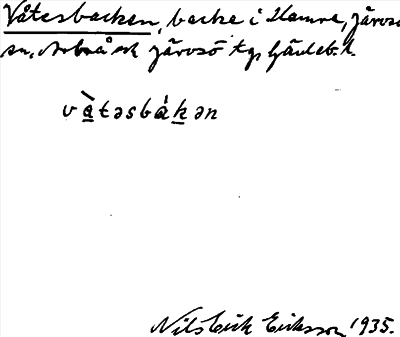 Våtesbacken, backe i Hamre, Järvsö
sn, Arbrå och Järvsö tg, Gävleb. l.
vàtəsbákən
Nils Erik Eriksson 1935.